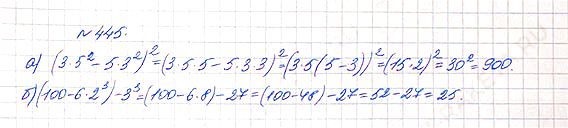 №445.
а) (3·5²-5·3²)²=(3·5·5-5·3·3)²=(3·5(5-3))²=(15·2)²=30²=900.
б) (100-6·2³)-3³=(100-6·8)-27=(100-48)-27=52-27=25.